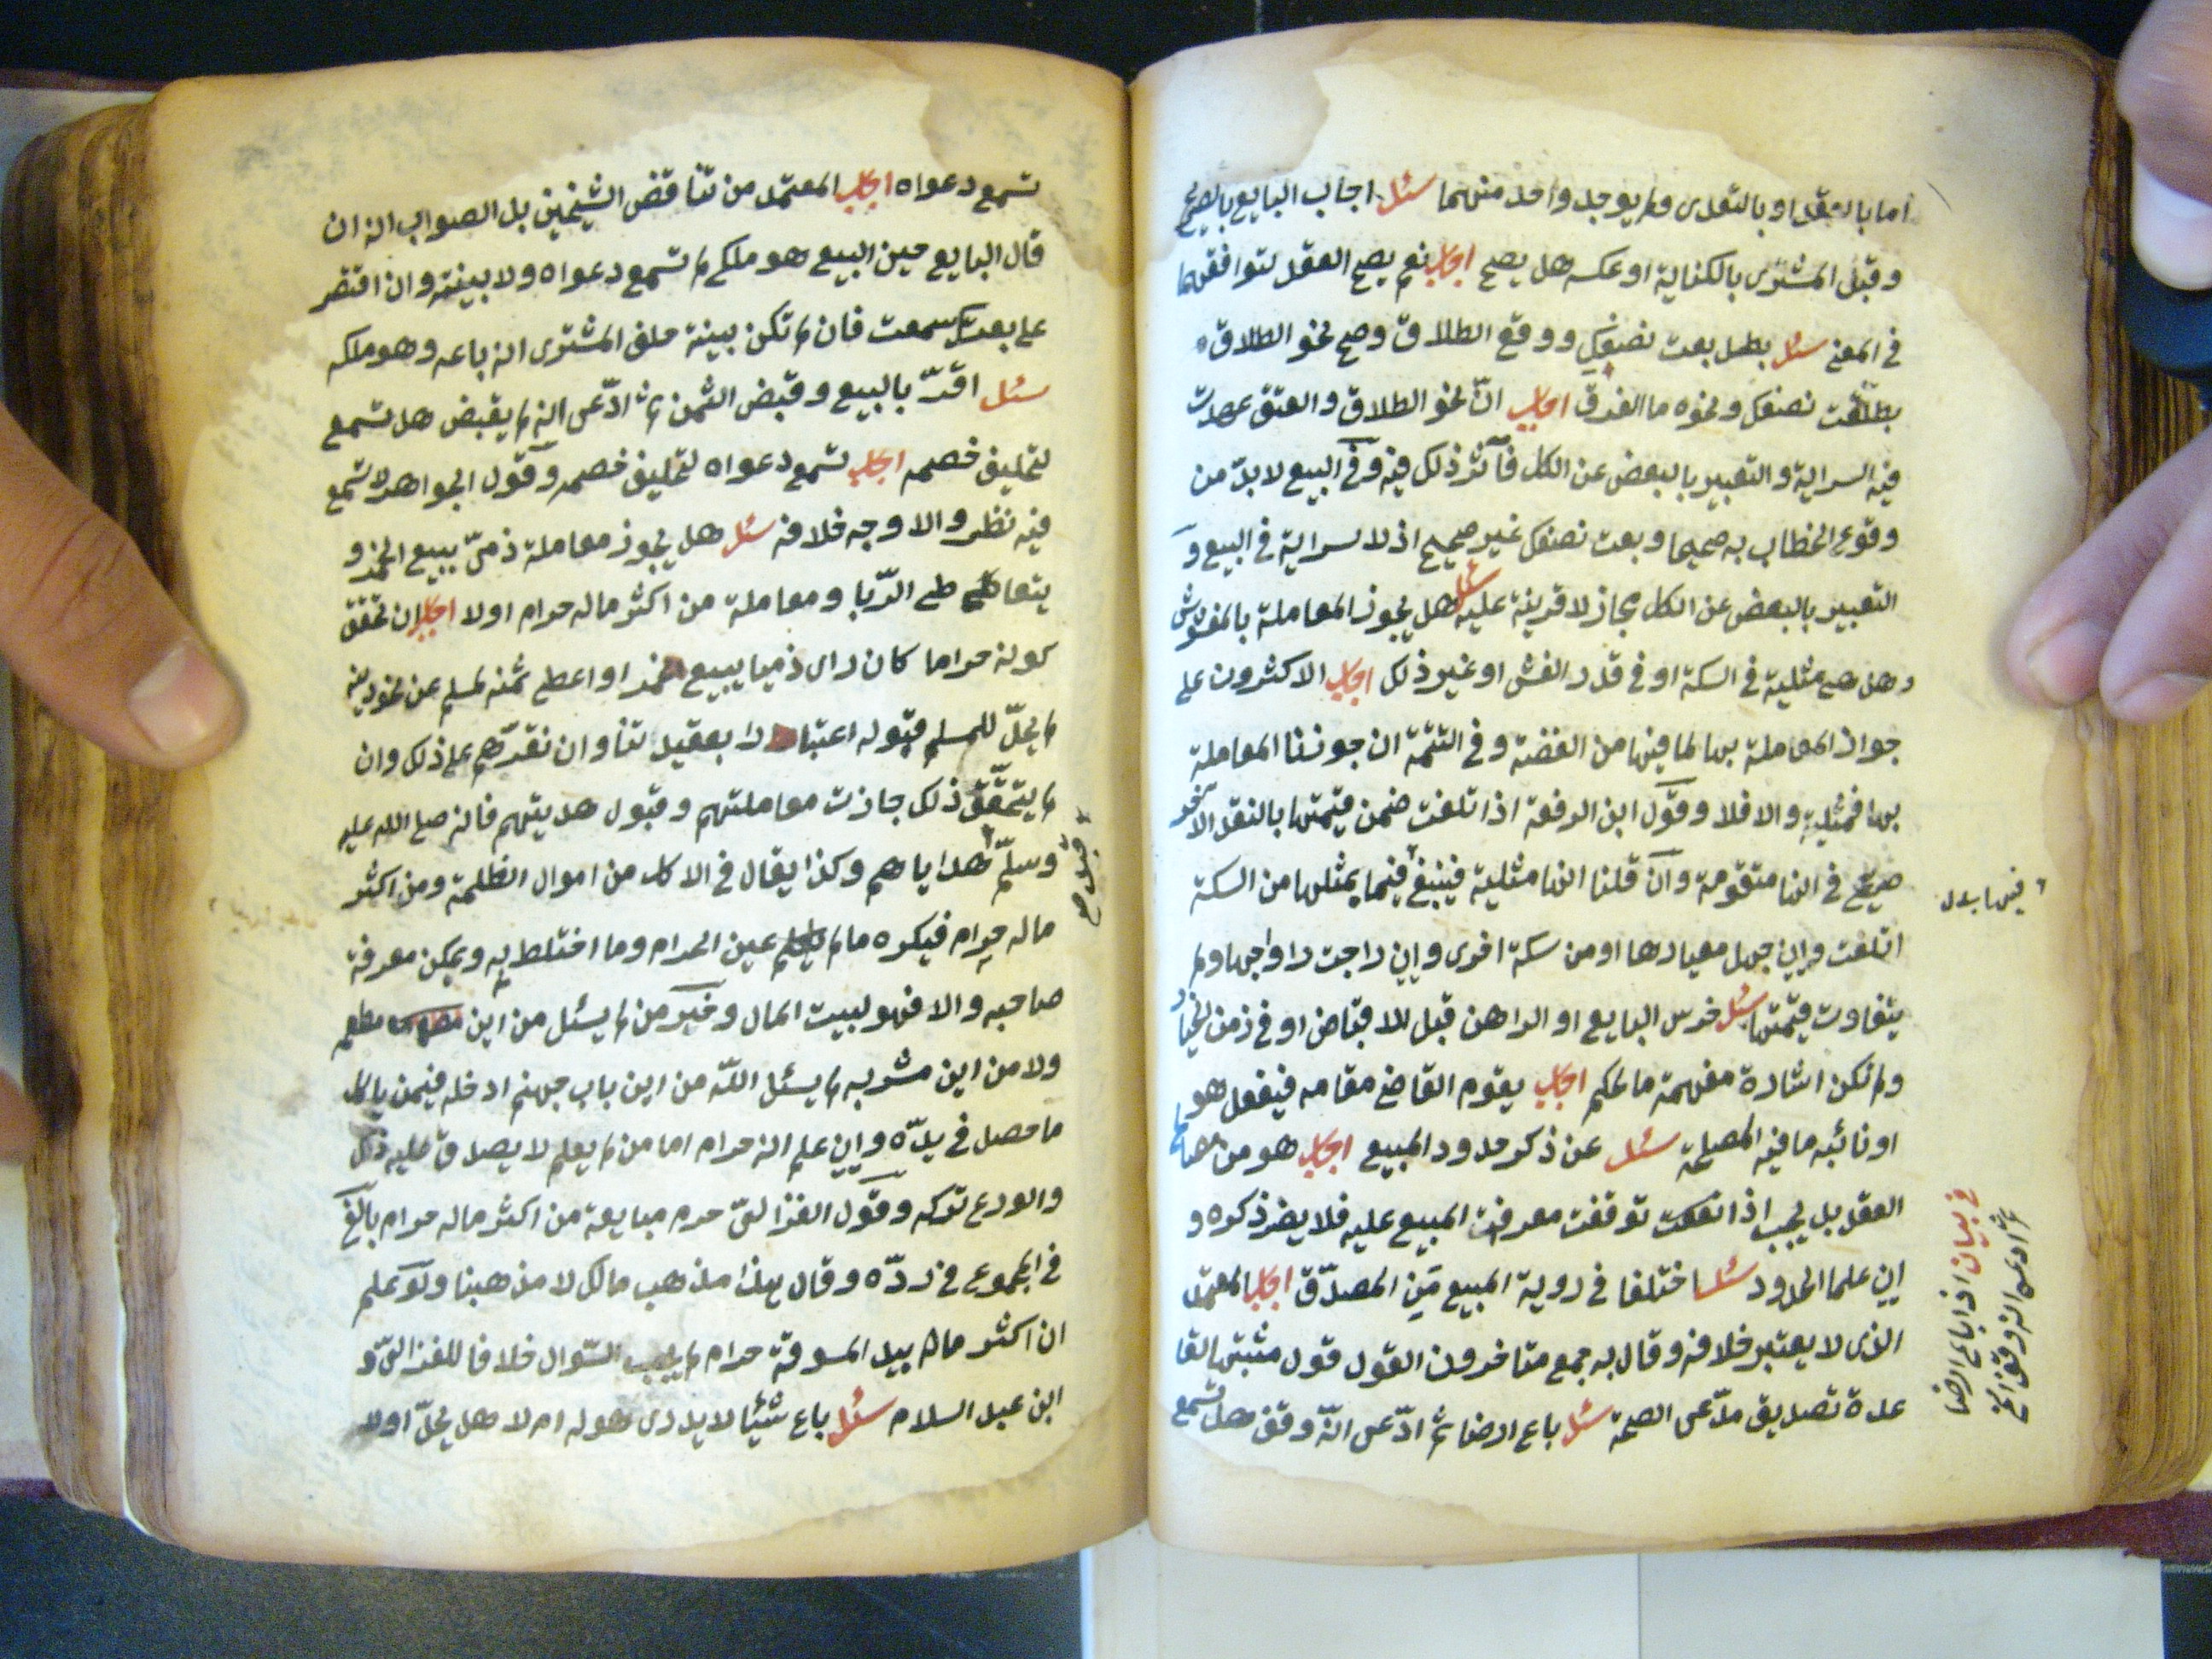 اما بالعقد او بالتعدى ولم يوجد واحد منهما سئل اجاب البايع بالصريح
وقبل المشترى بالكناية او عكسه هل يصح اجاب نعم يصح العقد لتوافقهما
فى المعنى سئل بطل بعت نصفك ووقع الطلاق وصح نحو الطلاق
بطلقت نصفك ونحوه ما الفرق اجاب ان نحو الطلاق والعتق عهدت
فيه السراية والتعبير بالبعض عن الكل فآثر ذلك فيه وفى البيع لا بدّ من
وقوع الخطاب به صحيحا وبعت نصفك غير صحيح اذ لا سراية فى البيع و
التعبير بالبعض عن الكل مجاز لا قرينة عليه سئل هل يجوز المعاملة بالمغشوش
وهل هى مثلية فى السكة او فى قدر الغش او غير ذلك اجاب الاكثرون على
جواز المعاملة بها لما فيها من الفضة وفى التتمة ان جوزنا المعاملة
بها فمثلية والا فلا وقول ابن الرفعة اذا تلفت ضمن قيمتها بالنقد الآخر
صريح فى انها متقومة وان قلنا انها مثلية فينبغى فيما بمثلها من السكة
فيها بدل
اتلفت وان جهل معيارها او من سكة اخرى وان راجت رواجها ولم
يتفاوت قيمتها سئل خرس البايع او الراهن قبل الاقباض او فى زمن الخيار
ولم تكن اشارة مفهمة ما الحكم اجاب يقوم القاضى مقامه فيفعل هو
او نائبه ما فيه المصلحة سئل عن ذكر حدود المبيع اجاب هو من مصالح
العقد بل يجب اذا توقفت معرفة المبيع عليه فلا يضر ذكره و
ان علما الحدود سئل اختلفا فى روية المبيع من المصدّق اجاب المعتمد
الذى لا يعتبر خلافه وقال به جمع متأخرون القول قول مثبتها لقا
عدة تصديق مدّعى الصحة سئل باع ارضا ثم ادّعى انّه وقف هل تسمع
فى بيان اذا باع ارضا
ثم ادعى انه وقف الخ
تسمع دعواه اجاب المعتمد من تناقض الشيخين بل الصواب انه ان
قال البايع حين البيع هو ملكى لم تسمع دعواه ولا بينته وان اقتصر
على بعت سمعت فان لم تكن بينة حلف المشترى انه باعه وهو ملكه
سئل اقرّ بالبيع وقبض الثمن ثم ادّعى انه لم يقبض هل تسمع
لتحليف خصمه اجاب تسمع دعواه لتحليف خصمه وقول الجواهر لا تسمع
فيه نظر والاوجه خلافه سئل هل يجوز معاملة ذمىّ يبيع الخمر و
يتعاطى الرّبا ومعاملة من اكثر ماله حرام اولا اجاب ان تحقق
كونه حراما كان راى ذميا يبيع خمرا واعطى ثمنه لمسلم عن نحو دينه
لم يحلّ للمسلم قبوله اعتبارا بعقيدتنا وان نقدّهم على ذلك وان
لم يتحقّق ذلك جازت معاملتهم وقبول هديتهم فانه صلى الله عليه
وسلّم هداياهم وكذا يقال فى الاكل من اموال الظلمة ومن اكثر
قبل صح
ماله حرام فيكره ما لم يعلم عين الحرام وما اختلط به ويمكن معرفة
صاحبه والا فهو لبيت المال وخبر من لم يسئل من اين مطعمه
ولا من اين مشربه لم يسئل الله من اين باب جهنم ادخله فيمن ياكل
ما حصل فى يدّه وان علم انه حرام اما من لم يعلم لا يصدق عليه ذلك
والورع تركه وقول الغزالىّ حرم مبايعة من اكثر ماله حرام بالغ
فى المجموع فى ردّه وقال بهذا مذهب مالك لا مذهبنا ولو علم
ان اكثر ما بيد السوقة حرام لم يجب السّوال خلافا للغزالىّ و
ابن عبد السلام سئل باع شيئا لا يدرى هو له ام لا هل يحلّ اولا